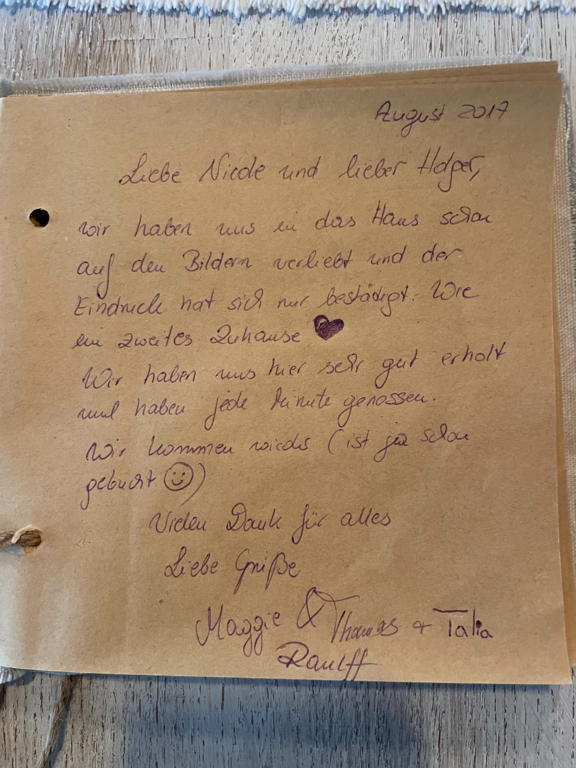 August 2017
Liebe Nicole und lieber Holger,
wir haben uns in das Haus schon
auf den Bildern verliebt und der
Eindruck hat sich nur bestätigt. Wie
ein zweites Zuhause ♥
Wir haben uns hier sehr gut erholt
und haben jede Minute genossen.
Wir kommen wieder (ist ja schon
gebucht ☺)
Vielen Dank für alles
Liebe Grüße
Maggie & Thomas + Talia
Raulff